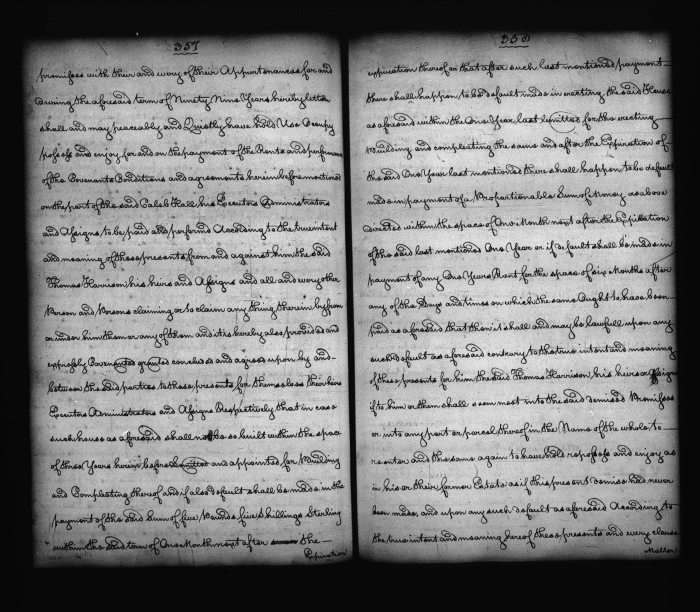 357
premises with their and every of their Appurtenances for and
During the aforesaid term of Ninety Nine Years hereby letten
shall and may peaceably and Quietly have hold Use Occupy
possess and enjoy for and on the payment of the Rents and performance
of the Covenants Conditions and agreements herein beforementioned
on the part of the said Caleb Hall his Executors Administrators
and Assigns to be paid and performed According to the true intent
and meaning of these presents from and against him the said
Thomas Harrison his heirs and Assigns and all and every other
Person and Persons claiming or to claim any thing therein by from
or under him them or any of them and it is hereby also provided and
expressly Covenanted granted concluded and agreed upon by and
between the said parties to these presents for themselves their heirs
Executors Administrators and Assigns Respectively that in case
such house as aforesaid shall not be so built within the space
of three Years herein before limitted and appointed for Building
and Compleating thereof and if also default shall be made in the
payment of the said Sum of five Pounds five Shillings Sterling
within the said term of One Month next after the
Expiration
358
expiration thereof or that after such last mentioned payment
there shall happen to be default made in erecting the said House
as aforesaid within the One Year last limitted for the erecting
Building and compleating the same and after the Expiration of
the said One Year last mentioned there shall happen to be default
made in payment of a Proportionable Sum of Money as above
directed within the space of One Month next after the Expiration
of the said last mentioned One Year or if default shall be made in
payment of any One Years Rent for the space of six Months after
any of the Days and times on which the same Ought to have been
paid as aforesaid that then it shall and may be lawfull upon any
such default as aforesaid contrary to the true intent and meaning
of these presents for him the said Thomas Harrison his heirs or Assigns
if to him or them shall seem meet into the said demised Premisses
or into any part or parcel thereof in the Name of the whole to
re enter and the same again to have hold repossess and enjoy as
in his or their former Estate as if this present demise had never
been made and upon any such default as aforesaid According to
the true intent and meaning hereof these presents and every clause
Matter